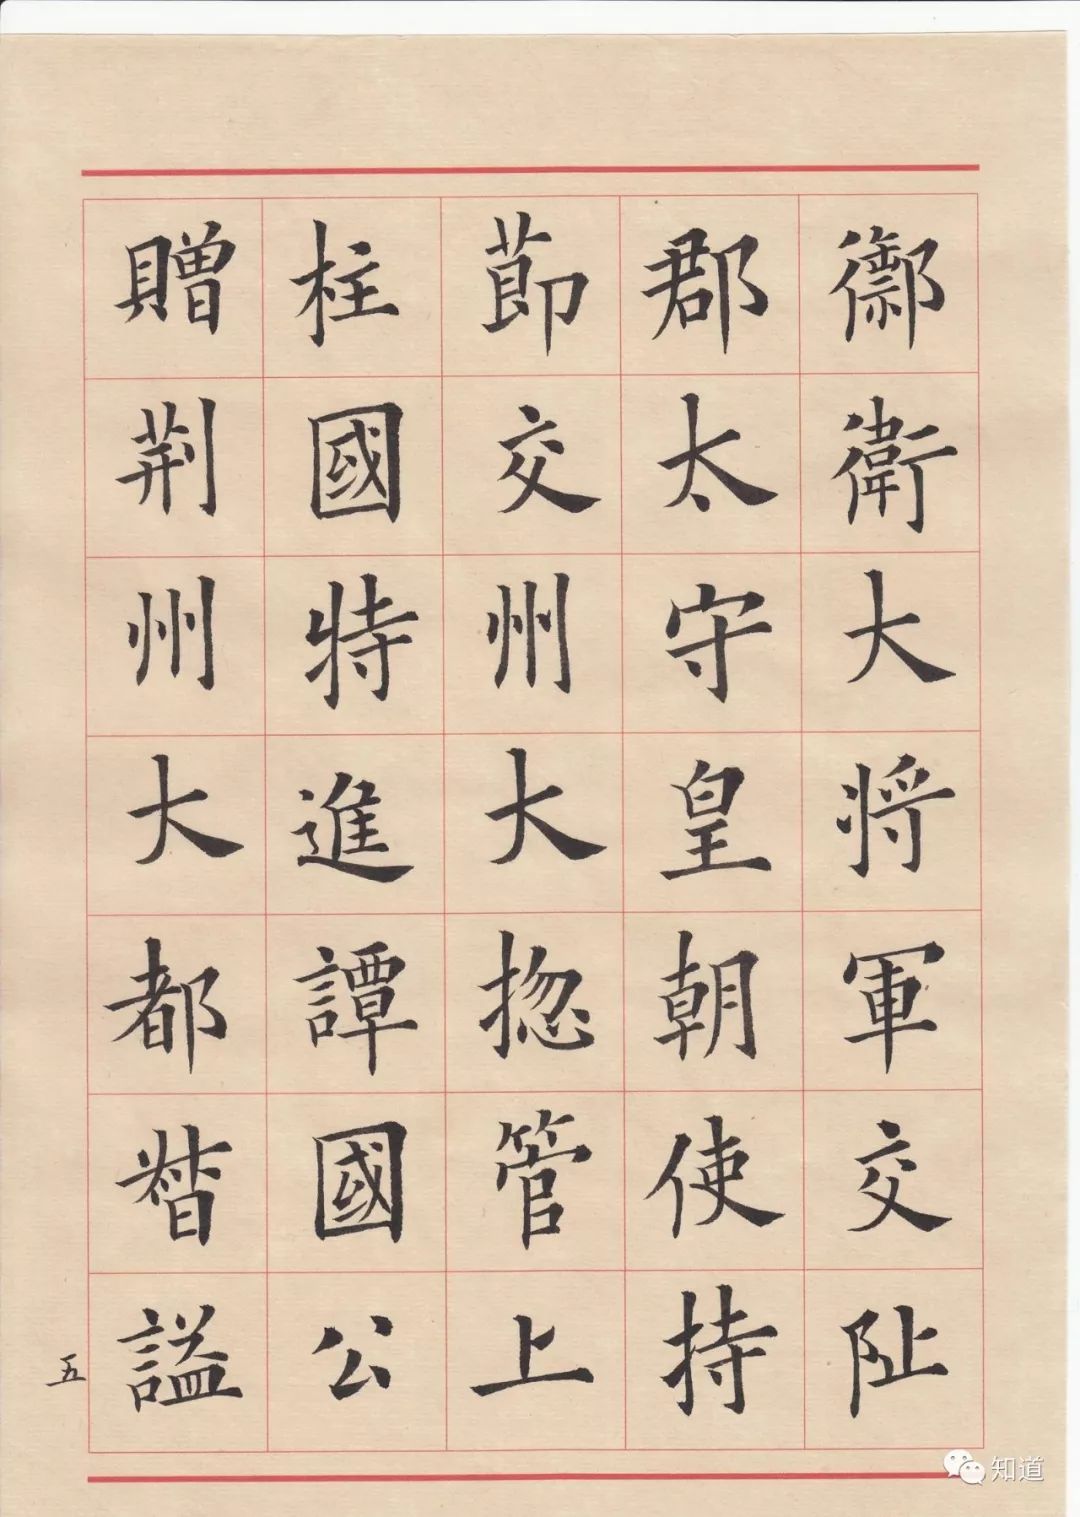 禦衛大将軍交阯
郡太守皇朝使持
莭交州大揔管上
柱國特進譚國公
贈荆州大都督謚
五
知道